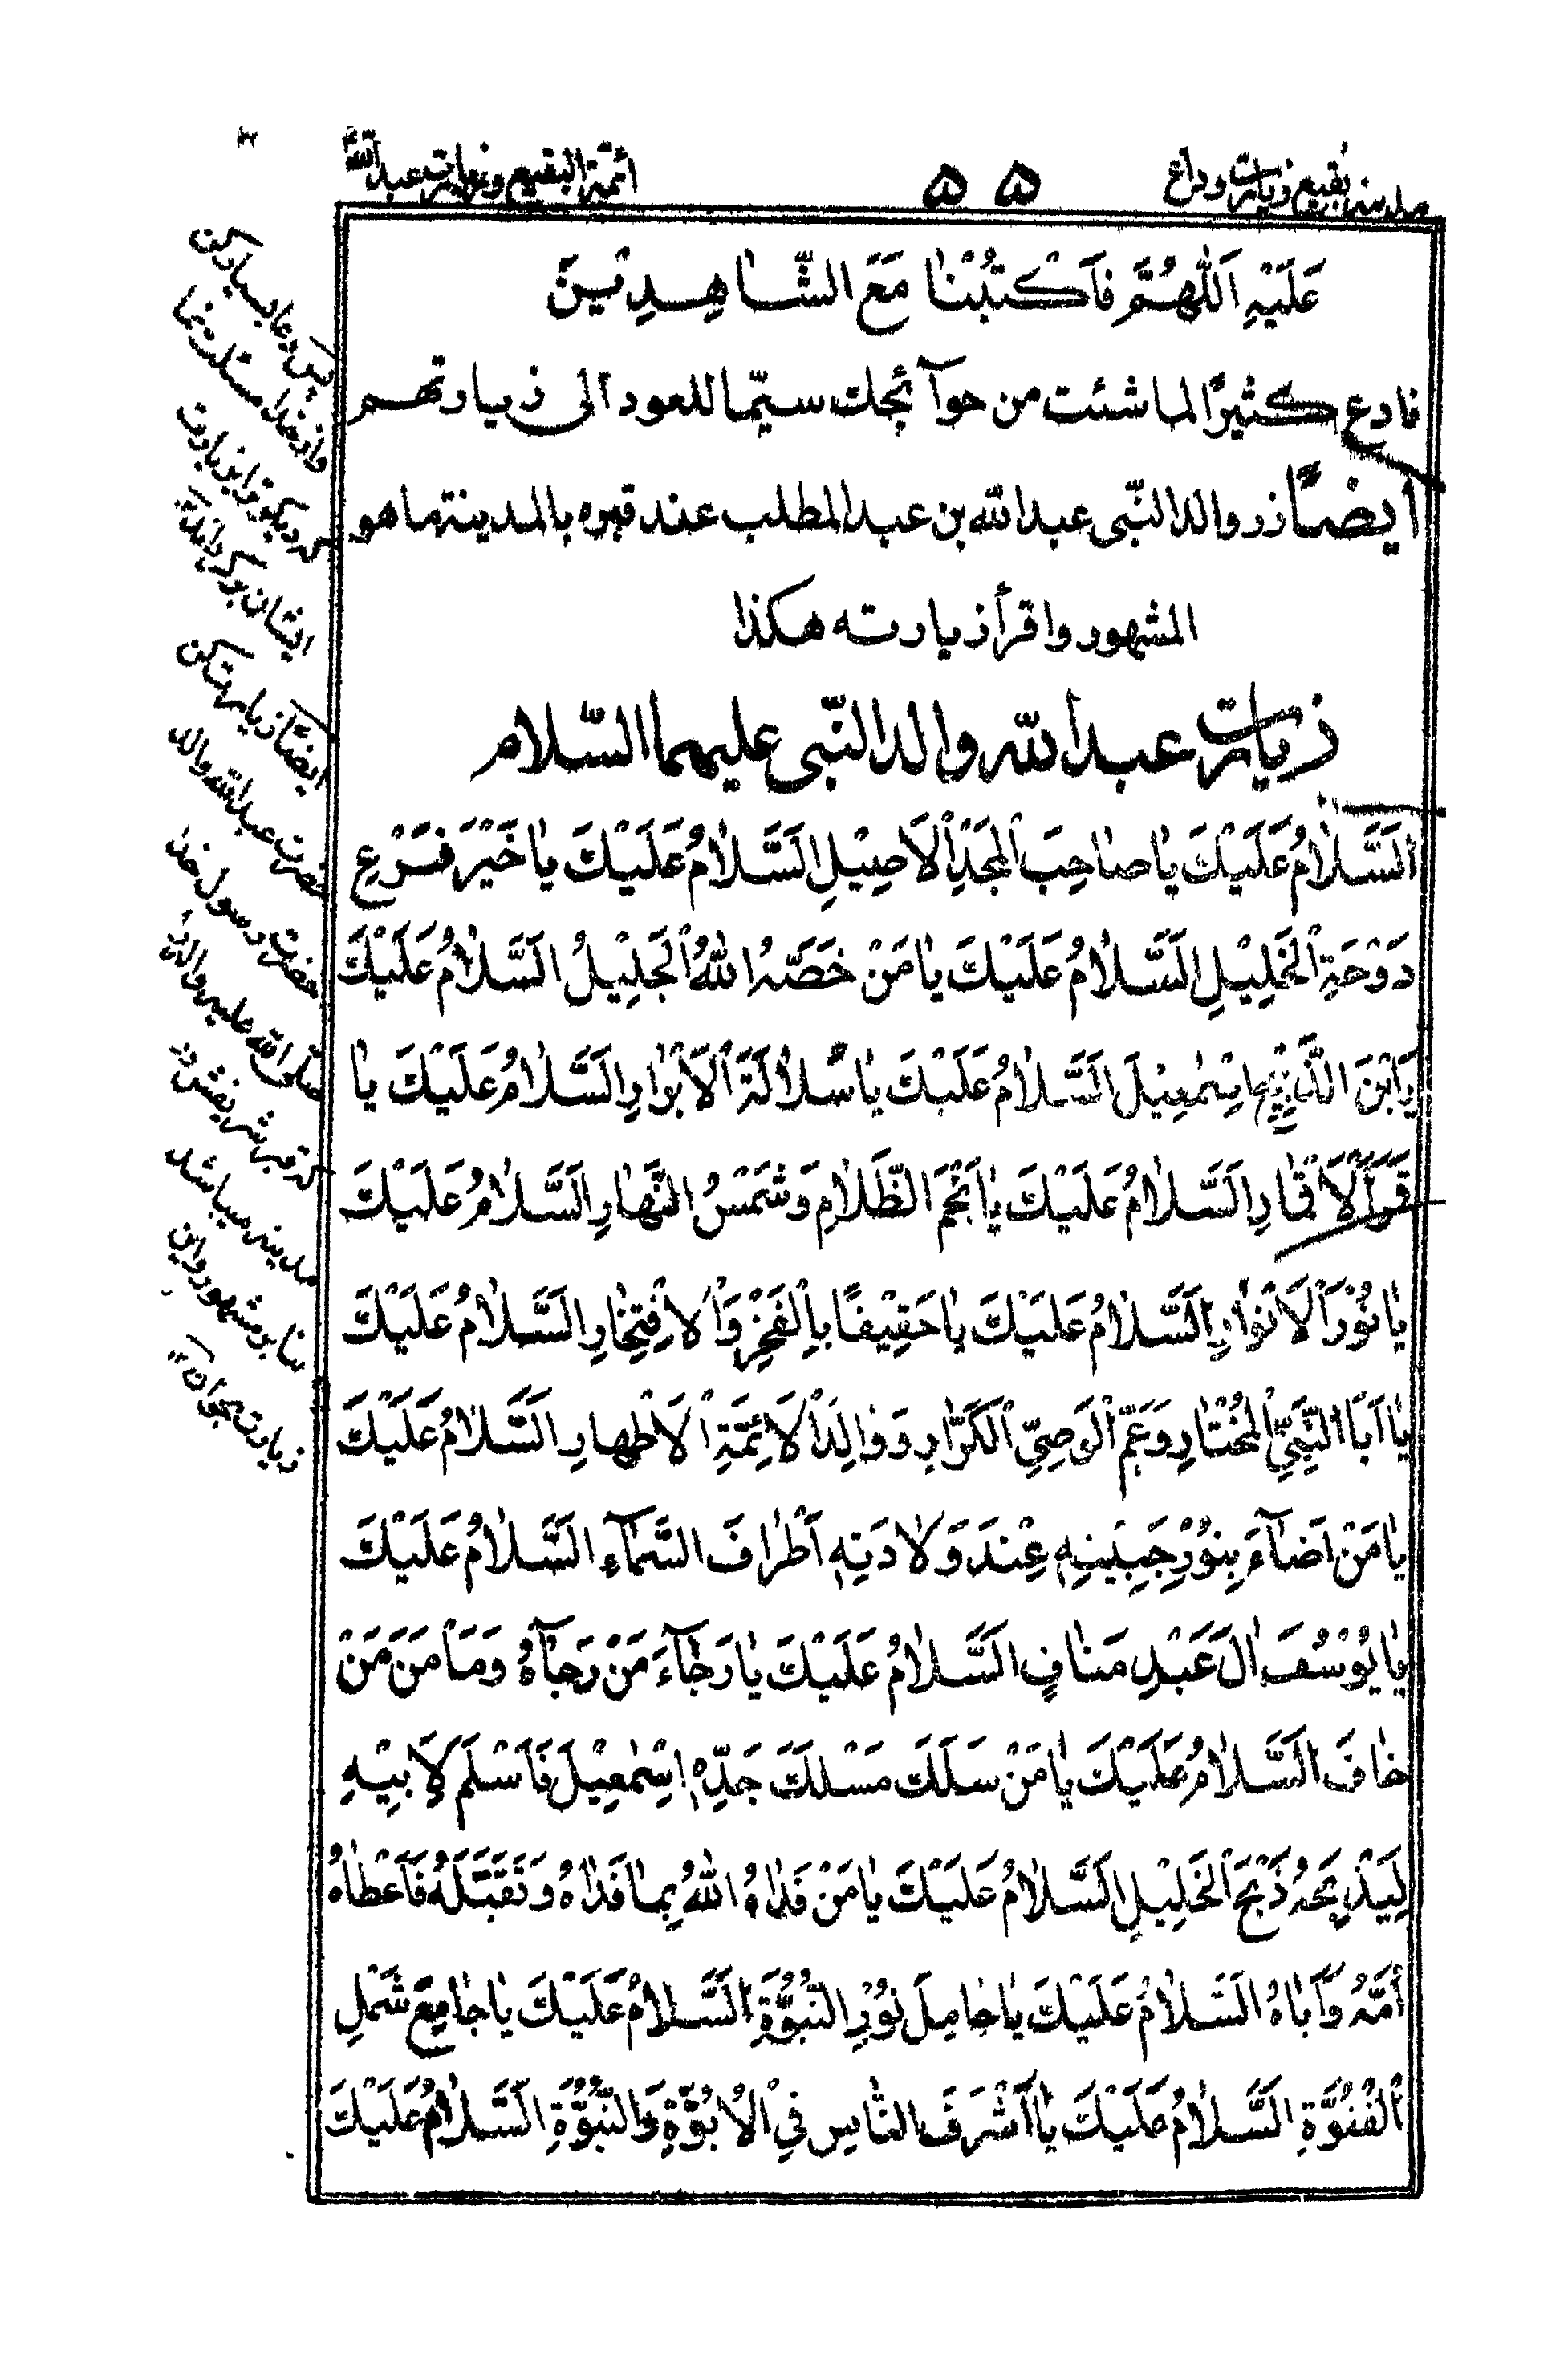 مدینه بقیع زیارت وداع
۵۵
أئمّة البقیع و زیارت عبداللّه
عَلَيْهِ اَللّٰهُمَّ فَاَكْتُبْنٰا مَعَ الشّٰاهِدِيْنَ
فادع كثيرًا لما شئت من حوآئجك سيّما للعود الى زيارتهم
ايضًا زر والد النّبى عبداللّه بن عبدالمطلب عند قبره بالمدينة ماهو
المشهور واقرأ زيارته هكذا
زيارت عبداللّه والد النّبى عليهما السّلام
اَلسَّلٰامُ عَلَيْكَ يٰا صٰاحِبَ الْمَجْدِ الْاَصِيْلِ اَلسَّلٰامُ عَلَيْكَ يٰا خَيْرَ فَرْعِ
دَوْحَةِ الْخَلِيْلِ اَلسَّلٰامُ عَلَيْكَ يٰا مَنْ خَصَّهُ اللّٰهُ الْجَلِيْلُ اَلسَّلٰامُ عَلَيْكَ
يَابْنَ الذَّبِيْحِ اِسْمٰعِيْلَ اَلسَّلٰامُ عَلَيْكَ يٰا سُلٰالَةَ الْاَبْرٰارِ اَلسَّلٰامُ عَلَيْكَ يٰا
قَمَرَ الْاَقْمٰارِ اَلسَّلٰامُ عَلَيْكَ يٰا نَجْمَ الظَّلٰامِ وَشَمْسُ النَّهٰارِ اَلسَّلٰامُ عَلَيْكَ
يٰا نُوْرَ الْاَنْوٰارِ اَلسَّلٰامُ عَلَيْكَ يٰا حَقِيْقًا بِالْفَخْرِ وَالْاِفْتِخٰارِ اَلسَّلٰامُ عَلَيْكَ
يٰا اَبَا النَّبِيِّ الْمُخْتٰارِ وَعَمِّ الْوَصِيِّ الْكَرّٰارِ وَ وٰالِدَ الْاَئِمَّةِ الْاَطْهٰارِ اَلسَّلٰامُ عَلَيْكَ
يٰا مَنْ اَضٰآءَ بِنُوْرِ جَبِيْنِهٖ عِنْدَ وَلٰادَتِهٖ اَطْرٰافَ السَّمٰآءِ اَلسَّلٰامُ عَلَيْكَ
يٰا يُوْسُفَ اٰلَ عَبْدِ مَنٰافٍ اَلسَّلٰامُ عَلَيْكَ يٰا رَجٰآءَ مَنْ رَجٰآهُ وَمَاْمَنَ مَنْ
خٰافَ اَلسَّلٰامُ عَلَيْكَ يٰا مَنْ سَلَكَ مَسْلَكَ جَدِّهٖ اِسْمٰعِيْلَ فَاَسْلَمَ لِاَبِيْهِ
لِيَذْبَحَهُ ذَبْحَ الْخَلِيْلِ اَلسَّلٰامُ عَلَيْكَ يٰا مَنْ فَدٰاهُ اللّٰهُ بِمٰا فَدٰاهُ وَتَقَبَّلَهُ فَاَعْطٰاهُ
اُمَّهُ وَاَبٰاهُ اَلسَّلٰامُ عَلَيْكَ يٰا حٰامِلَ نُوْرِ النُّبُوَّةِ اَلسَّلٰامُ عَلَيْكَ يٰا جٰامِعَ شَمْلِ
الْفُتُوَّةِ اَلسَّلٰامُ عَلَيْكَ يٰا اَشْرَفَ النّٰاسِ فِي الْاُبُوَّةِ وَالنُّبُوَّةِ اَلسَّلٰامُ عَلَيْكَ
پس دعا بسیار کن
واز خدا مسئلت نما
که دیگر توانی زیارت
ایشان بوکرد
ایضًا زیارت کن
حضرت عبدالله والد
حضرت رسول خدا
صلی الله علیه واله
که قبر شریفش در
مدینه میباشد
بنا بر مشهور و این
زیارت بخوان